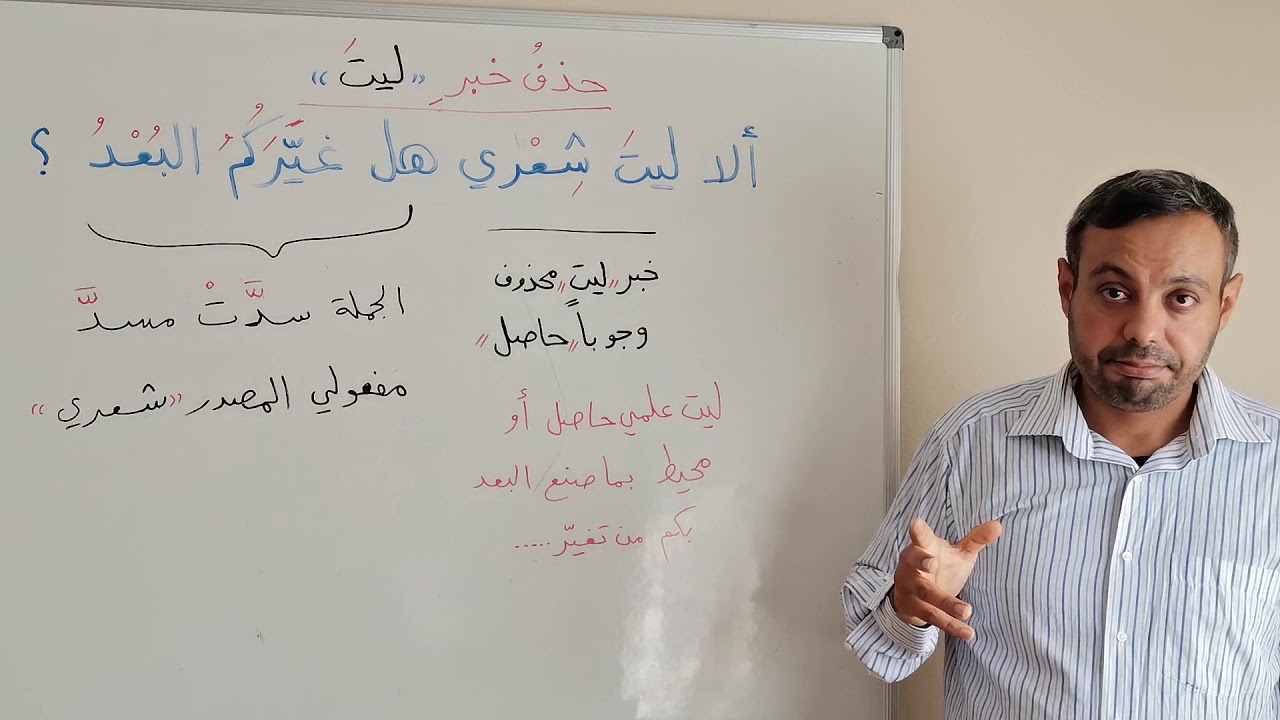 حذفُ خبرِ «ليتَ»
ألا ليتَ شِعْري هل غيَّرَكُمُ البُعْدُ ؟
خبر "ليت" محذوف
وجوباً "حاصل"
ليت علمي حاصل أو
محيط بما صنع البعد
بكم من تغيّر .....
الجملة سدَّتْ مسدَّ
مفعولي المصدر "شعري"